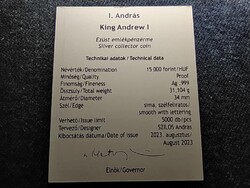 I. András
King Andrew I
Ezüst emlékpénzérme
Silver collector coin
Technikai adatok / Technical data
Névérték/Denomination 15 000 forint/HUF
Minőség/Quality Proof
Finomság/Fineness Ag .999
Össztsúly/Total weight 31,104 g
Átmérő/Diameter 34 mm
Szél/Edge sima, szélfeliratos/
smooth with lettering
Verhető/Issue limit 5000 db/pcs
Tervező/Designer SZILOS András
Kibocsátás dátuma/Date of issue 2023. augusztus/
August 2023
Elnök/Governor